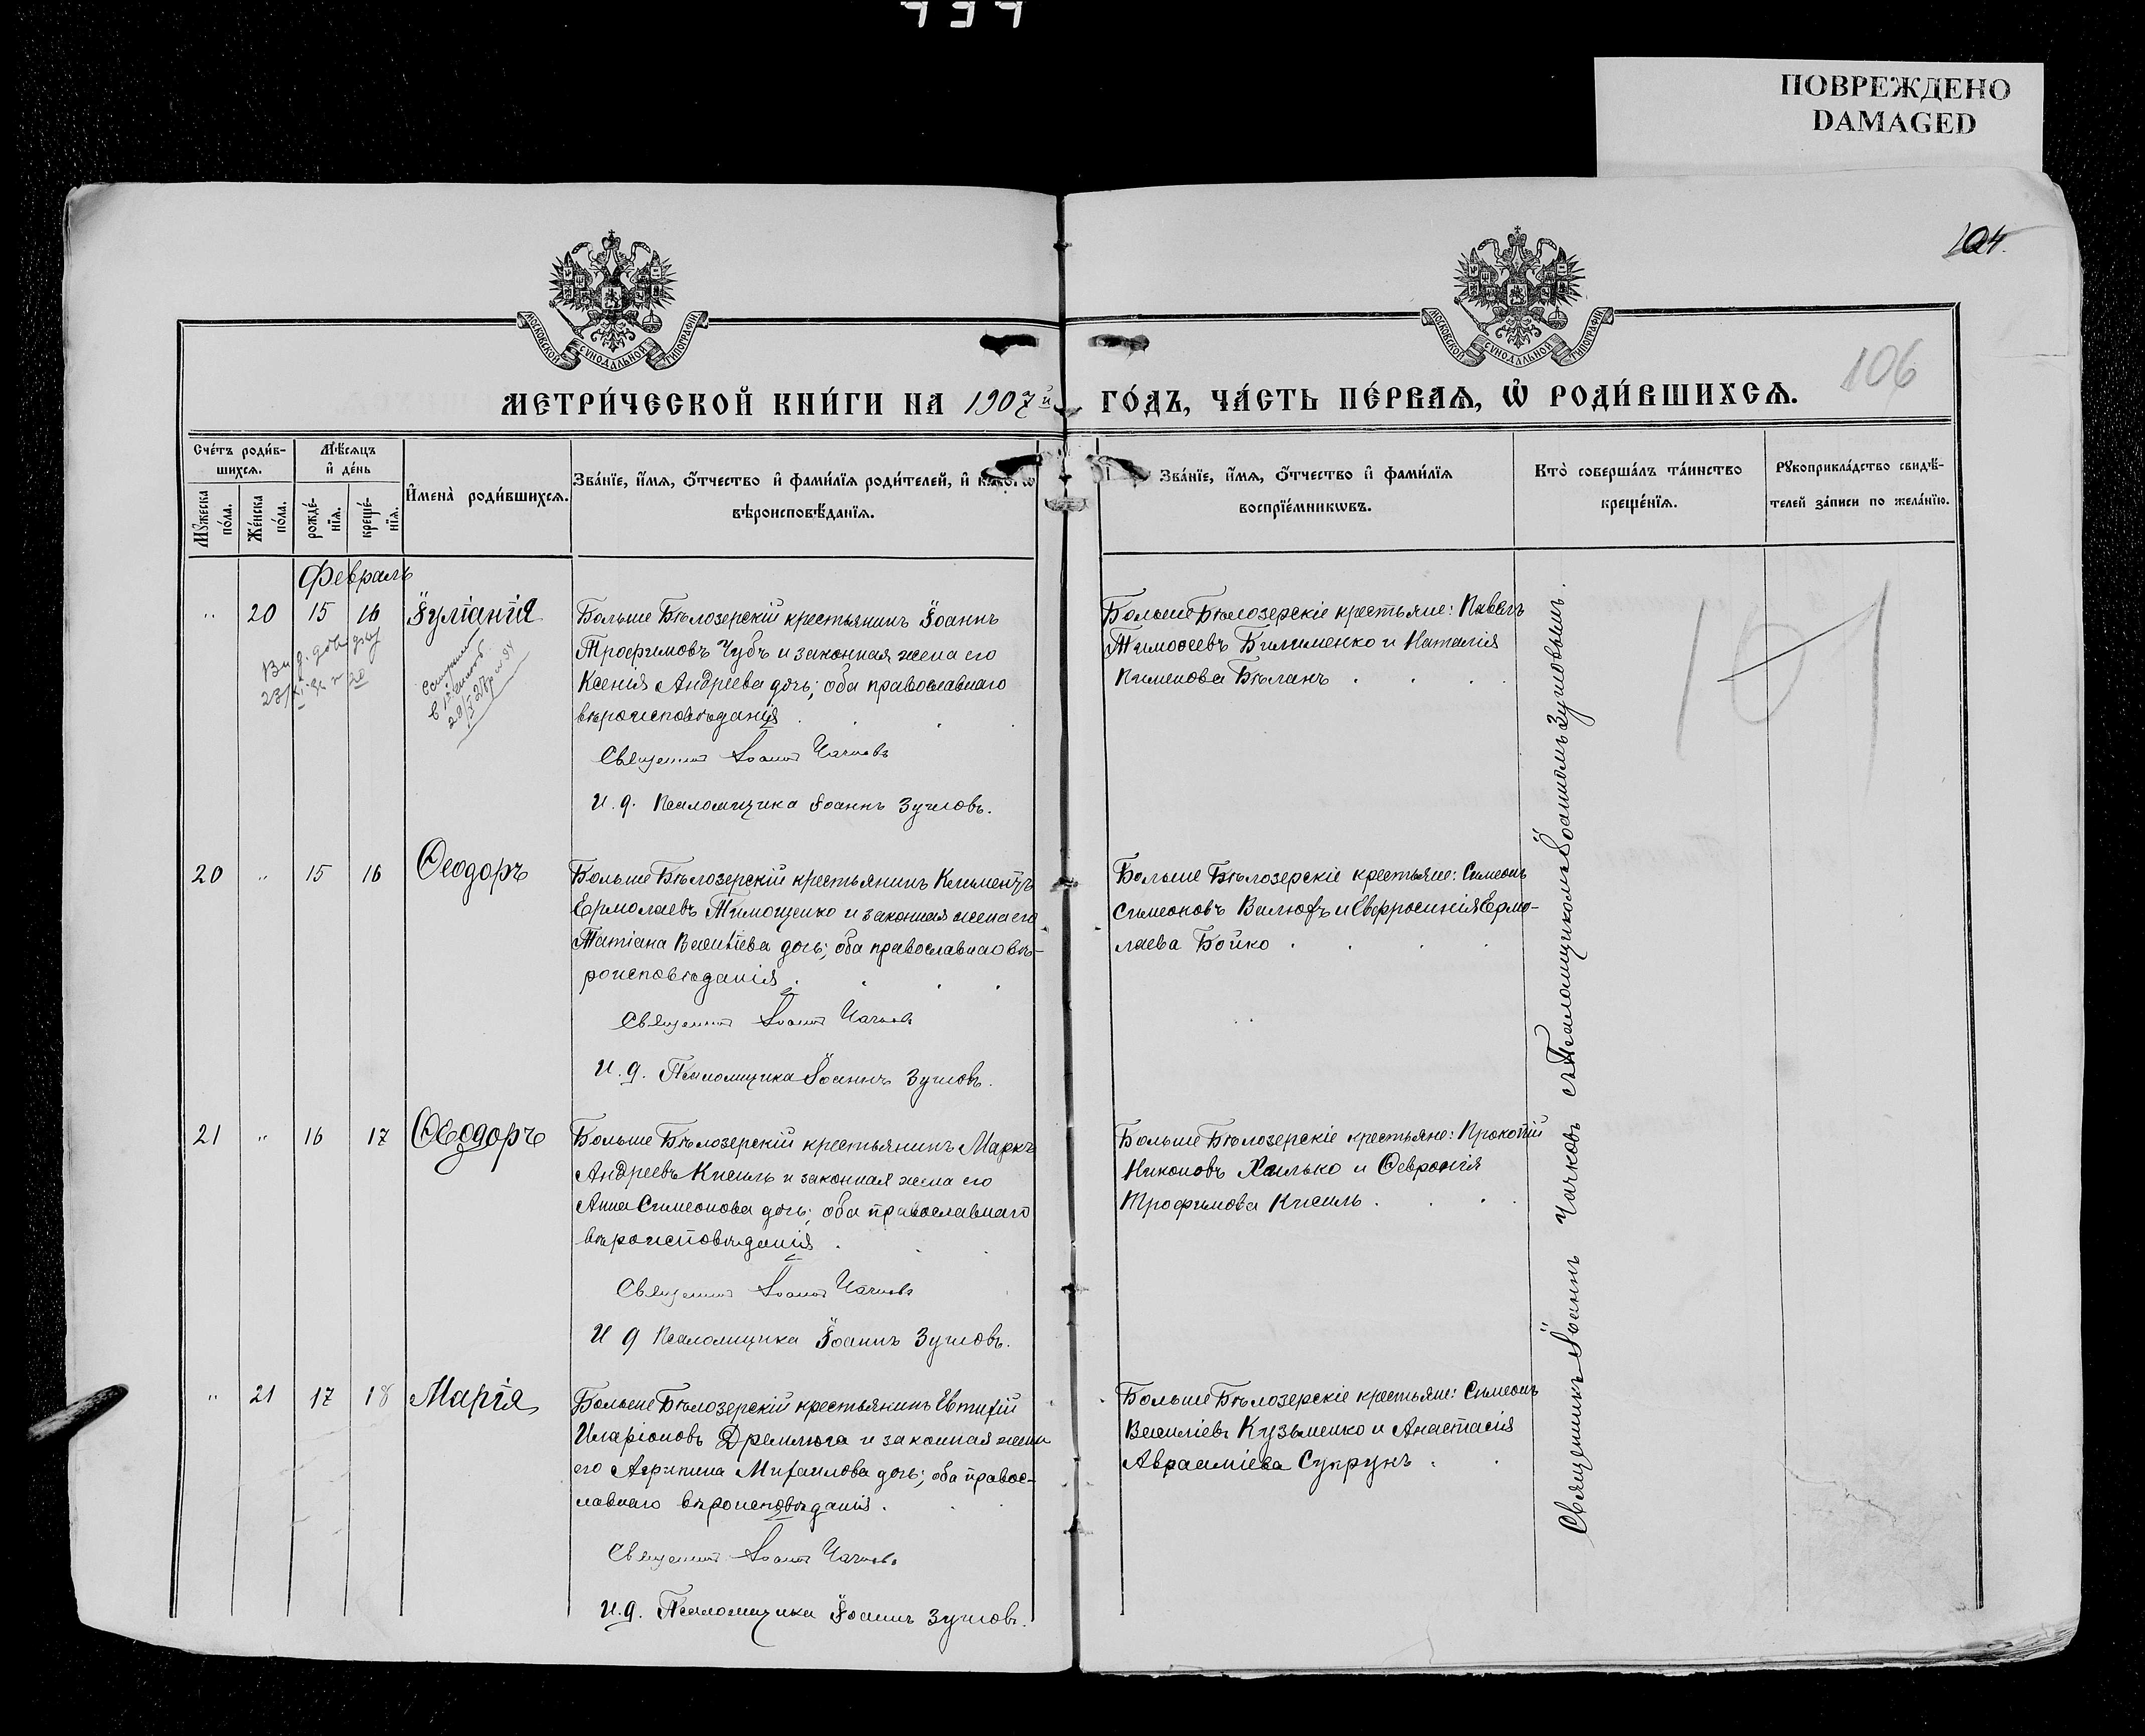 ПОВРЕЖДЕНО
DAMAGED
104.
106
МОСКОВСКОЙ СѴНОДАЛЬНОЙ ТИПОГРАФІИ
МОСКОВСКОЙ СѴНОДАЛЬНОЙ ТИПОГРАФІИ
МЕТРИ́ЧЕСКОЙ КНИ́ГИ НА 1907й ГО́ДЪ, ЧА́СТЬ ПЕ́РВАѦ, Ѿ РОДИ́ВШИХСѦ.
Сче́тъ роди́в-
шихсѧ.
Мꙋ́жеска по́ла.
Же́нска по́ла.
Мѣ́сѧцъ
и҆ де́нь
рожде́-
нїѧ.
креще́-
нїѧ.
И҆мена̀ роди́вшихсѧ.
Зва́нїе, и҆́мѧ, ѻ҆́тчество и҆ фами́лїѧ роди́телей, и҆ како́гѡ
вѣроисповѣ́данїѧ.
Зва́нїе, и҆́мѧ, ѻ҆́тчество и҆ фами́лїѧ
воспрїе́мникѡвъ.
Кто̀ соверша́лъ та́инство
креще́нїѧ.
Рꙋкоприкла́дство свидѣ́-
телей за́писи по жела́нїю.
Февраль
" 20 15 16 Іуліанія
Больше Бѣлозерскій крестьянинъ Іоаннъ
Трофимовъ Чубъ и законная жена его
Ксенія Андреева дочь; оба православнаго
вѣроисповѣданія.
Священник Іоанн Чачковъ
И. д. Псаломщика Іоаннъ Зуиловъ.
Больше Бѣлозерскіе крестьяне: Павелъ
Тимофеевъ Билименко и Наталія
Пименова Бѣланъ.
101
20 " 15 16 Ѳеодоръ
Больше Бѣлозерскій крестьянинъ Климентъ
Ермолаевъ Тимощенко и законная жена его
Татіана Васильева дочь; оба православнаго вѣ-
роисповѣданія.
Священник Іоанн Чачковъ
И. д. Псаломщика Іоаннъ Зуиловъ.
Больше Бѣлозерскіе крестьяне: Симеонъ
Симеоновъ Валюхъ и Евфросинія Ермо-
лаева Бойко.
21 " 16 17 Ѳеодоръ
Больше Бѣлозерскій крестьянинъ Маркъ
Андреевъ Кисиль и законная жена его
Анна Симеонова дочь; оба православнаго
вѣроисповѣданія.
Священник Іоанн Чачковъ
И д Псаломщика Іоаннъ Зуиловъ.
Больше Бѣлозерскіе крестьяне: Прокопій
Никоновъ Хилько и Ѳевронія
Трофимова Кисиль.
" 21 17 18 Марія
Больше Бѣлозерскій крестьянинъ Евтихій
Иларіоновъ Дремлюга и законная жена
его Агрипина Михаилова дочь; оба правос-
лавнаго вѣроисповѣданія.
Священник Іоанн Чачковъ
И. д. Псаломщика Іоаннъ Зуиловъ.
Больше Бѣлозерскіе крестьяне: Симеонъ
Василіевъ Кузьменко и Анастасія
Авраміева Супрунъ.
Священникъ Іоаннъ Чачковъ съ Псаломщикомъ Іоанномъ Зуиловымъ.